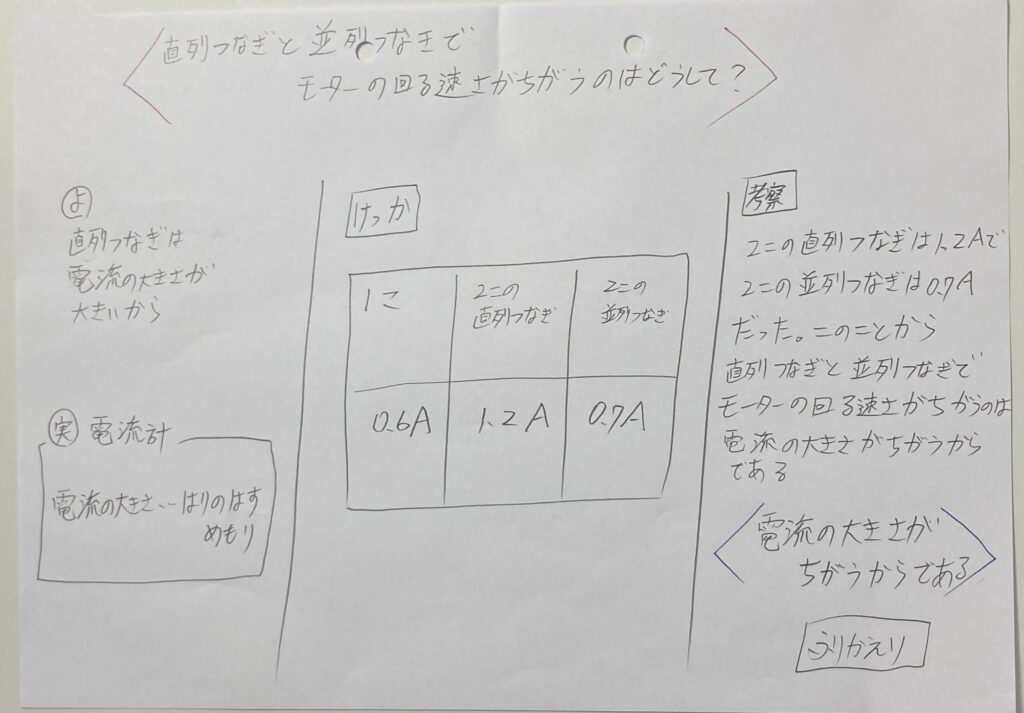 直列つなぎと並列つなぎで
モーターの回る速さがちがうのはどうして？
よ
直列つなぎは
電流の大きさが
大きいから
実 電流計
電流の大きさ…はりのはす
めもり
けっか
1こ
2この
直列つなぎ
2この
並列つなぎ
0.6A
1.2A
0.7A
考察
2この直列つなぎは1.2Aで
2この並列つなぎは0.7A
だった。このことから
直列つなぎと並列つなぎで
モーターの回る速さがちがうのは
電流の大きさがちがうから
である
電流の大きさが
ちがうからである
ふりかえり